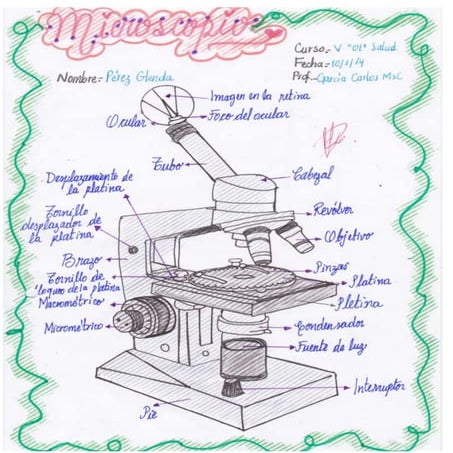 Microscopio
Curso:- V "02" Salud
Fecha:- 10/1/14
Nombre:- Pérez Glenda
Prof.- García Carlos MSc
Imagen en la retina
Ocular
Foco del ocular
Tubo
Desplazamiento de
la platina
Cabezal
Tornillo
desplazador de
la platina
Revólver
Objetivo
Brazo
Pinzas
Tornillo de
bloqueo de la platina
Platina
Macrométrico
Pletina
Micrométrico
Condensador
Fuente de luz
Interruptor
Pie